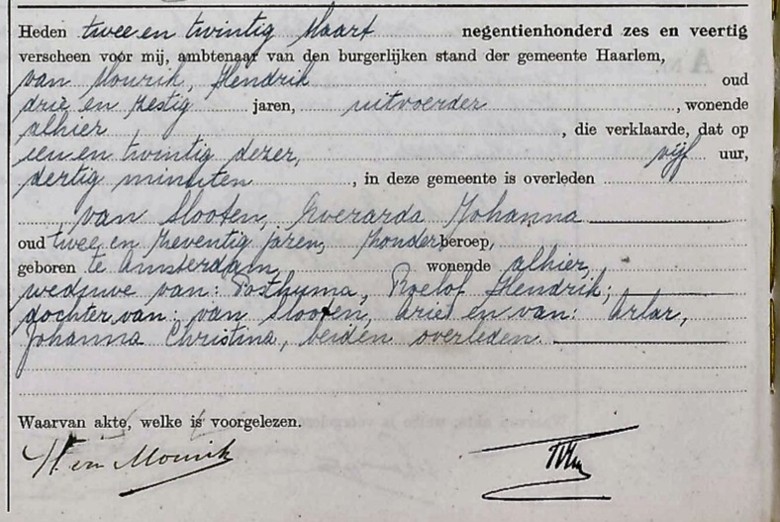 Heden twee en twintig Maart negentienhonderd zes en veertig
verscheen voor mij, ambtenaar van den burgerlijken stand der gemeente Haarlem,
van Mourik, Hendrik oud
drie en zestig jaren, uitvoerder, wonende
alhier, die verklaarde, dat op
een en twintig dezer, vijf uur,
dertig minuten, in deze gemeente is overleden
van Slooten, Everarda Johanna
oud twee en zeventig jaren, zonder beroep,
geboren te Amsterdam, wonende alhier,
weduwe van: Posthuma, Roelof Hendrik;
dochter van: van Slooten, Arie en van: Arlar,
Johanna Christina, beiden overleden.
Waarvan akte, welke is voorgelezen.
H van Mourik